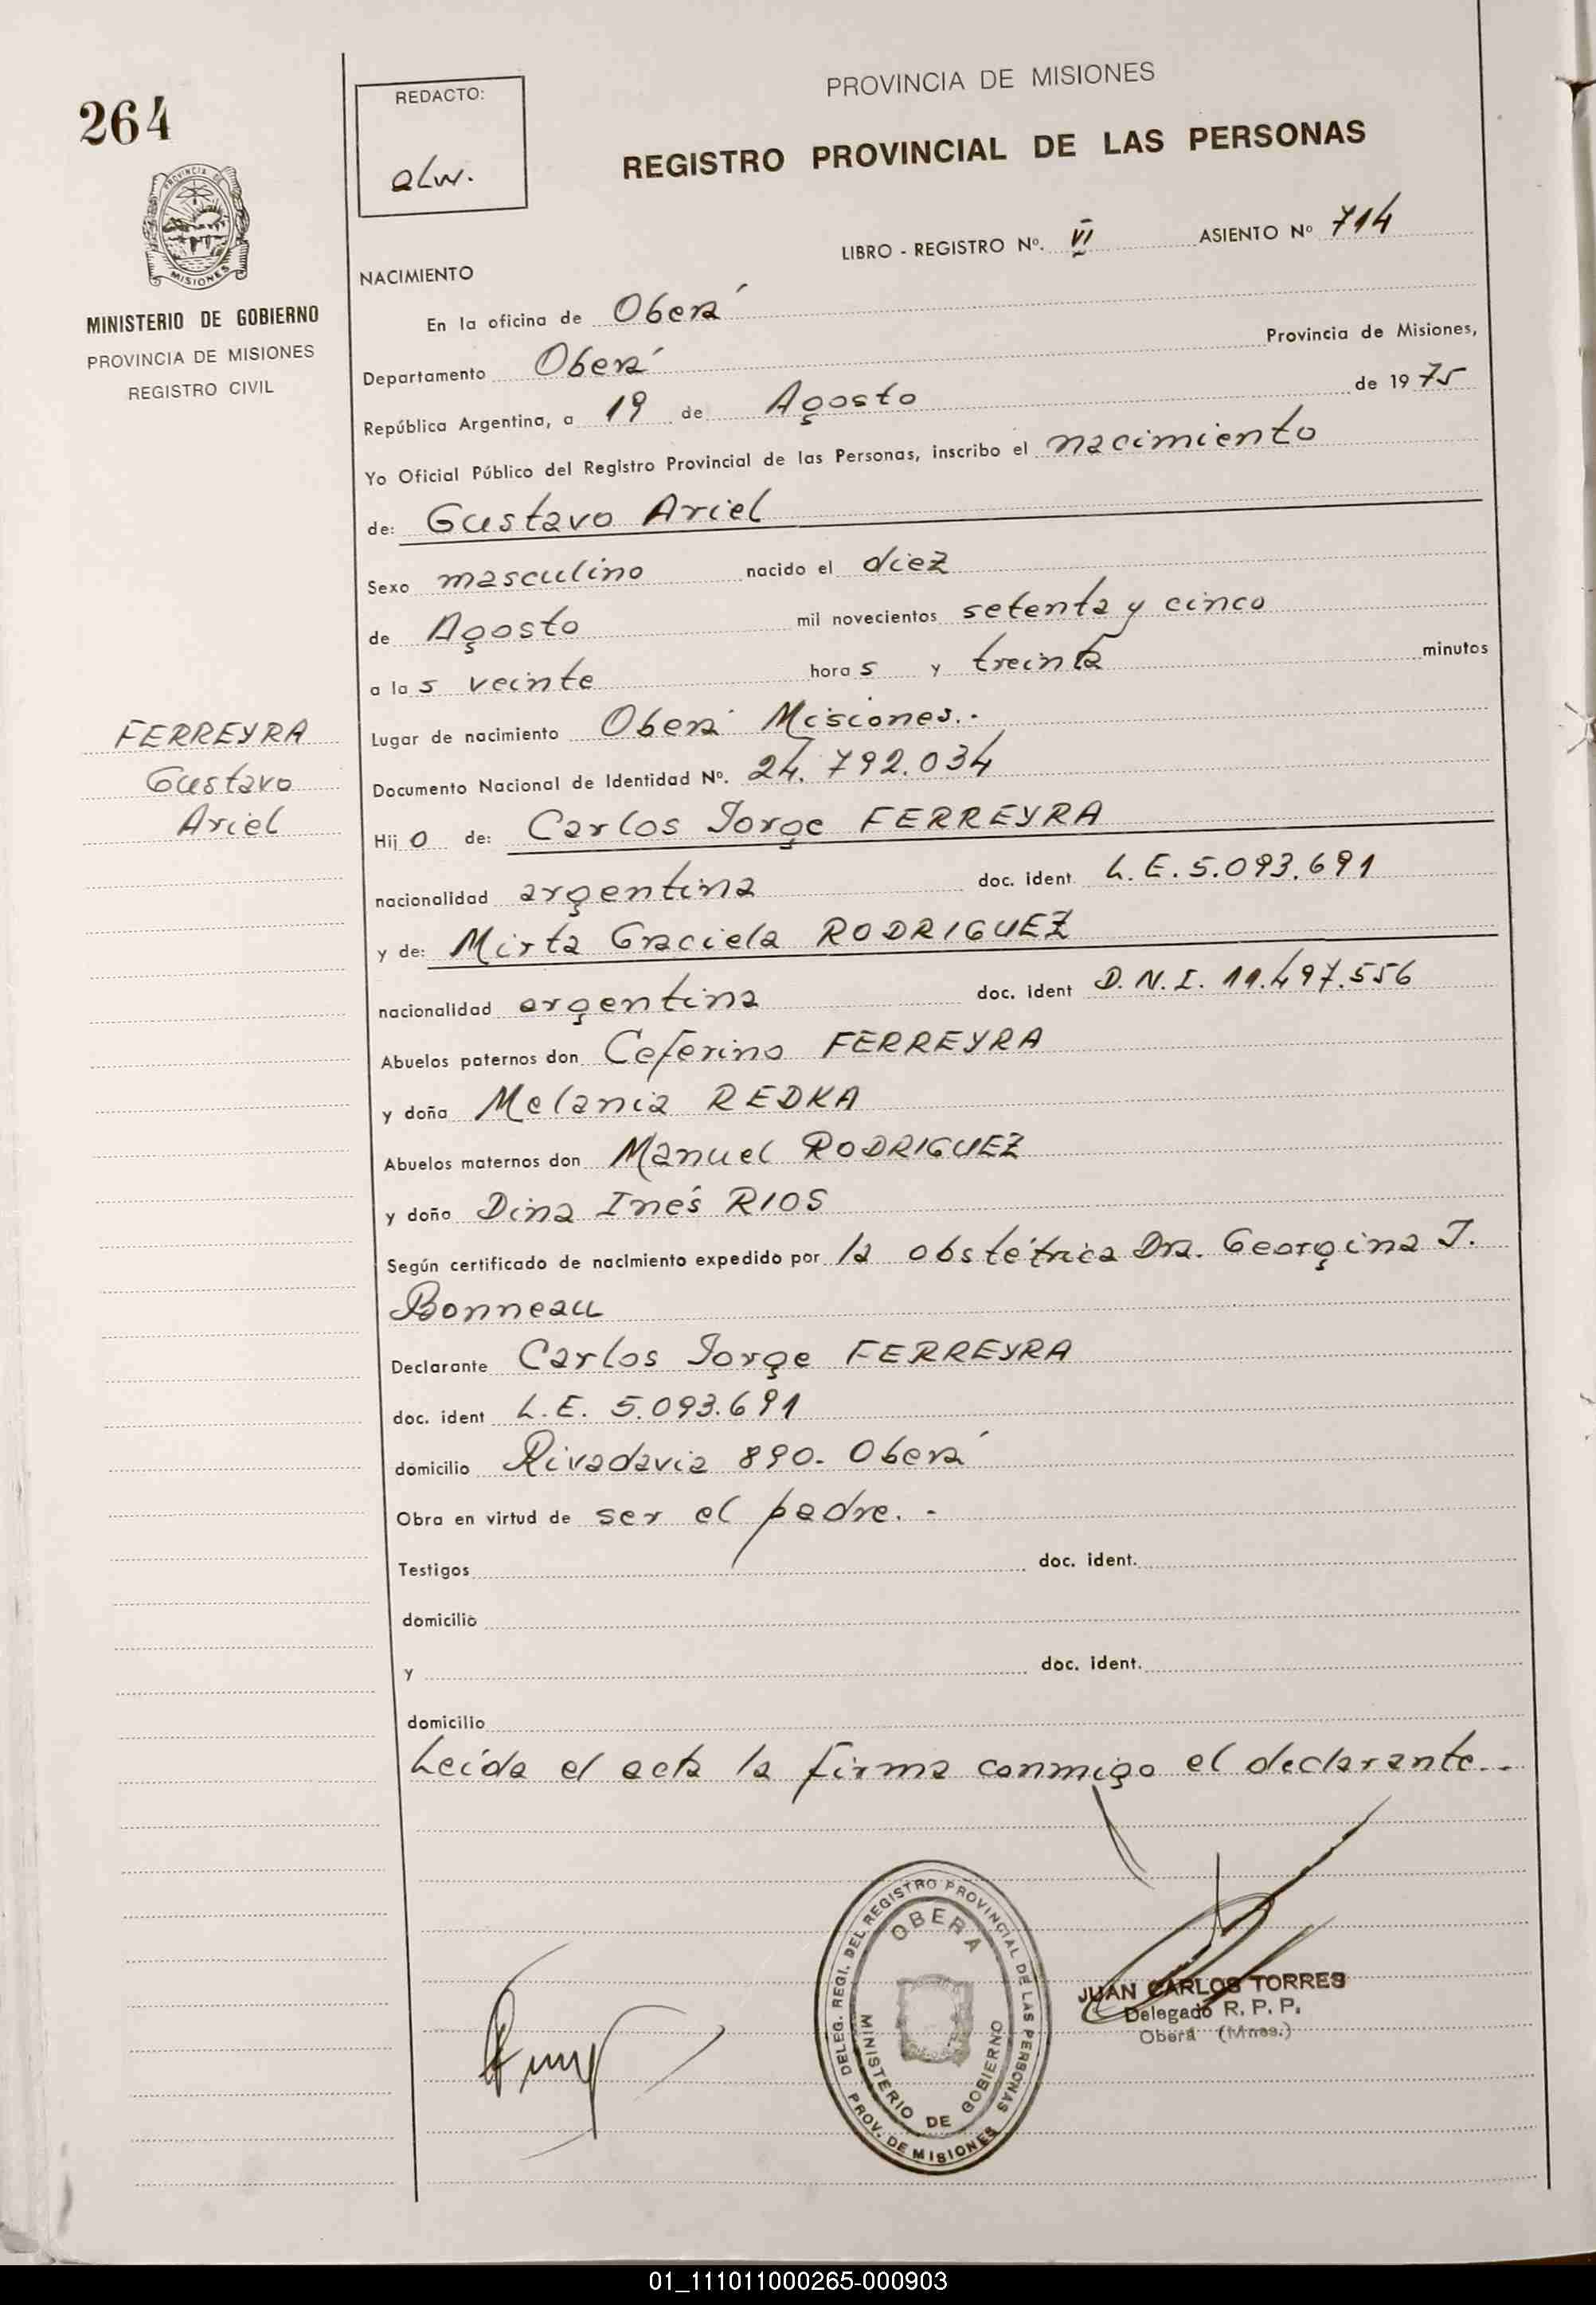 264
PROVINCIA DE MISIONES
MINISTERIO DE GOBIERNO
PROVINCIA DE MISIONES
REGISTRO CIVIL
FERREYRA
Gustavo
Ariel
REDACTO:
alw.
PROVINCIA DE MISIONES
REGISTRO PROVINCIAL DE LAS PERSONAS
LIBRO - REGISTRO Nº. VI ASIENTO Nº 714
NACIMIENTO
En la oficina de Oberá
Departamento Oberá Provincia de Misiones,
República Argentina, a 19 de Agosto de 1975
Yo Oficial Público del Registro Provincial de las Personas, inscribo el nacimiento
de: Gustavo Ariel
Sexo masculino nacido el diez
de Agosto mil novecientos setenta y cinco
a las veinte horas y treinta minutos
Lugar de nacimiento Oberá Misiones.-
Documento Nacional de Identidad Nº. 24.792.034
Hijo de: Carlos Jorge FERREYRA
nacionalidad argentina doc. ident. L.E. 5.093.691
y de: Mirta Graciela RODRIGUEZ
nacionalidad argentina doc. ident D.N.I. 11.497.556
Abuelos paternos don Ceferino FERREYRA
y doña Melania REDKA
Abuelos maternos don Manuel RODRIGUEZ
y doña Dina Inés RIOS
Según certificado de nacimiento expedido por la obstétrica Dra. Georgina J.
Bonneau
Declarante Carlos Jorge FERREYRA
doc. ident L.E. 5.093.691
domicilio Rivadavia 890. Oberá
Obra en virtud de ser el padre.-
Testigos doc. ident.
domicilio
y doc. ident.
domicilio
Leída el acta la firma conmigo el declarante.-
DELEG. REGI. DEL REGISTRO PROVINCIAL DE LAS PERSONAS
OBERA
MINISTERIO DE GOBIERNO
PROV. DE MISIONES
JUAN CARLOS TORRES
Delegado R. P. P.
Oberá (Mnes.)
01_111011000265-000903